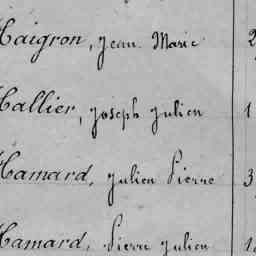 Haigron, Jean Marie 2
Hallier, Joseph Julien 1
Hamard, Julien Pierre 3
Hamard, Pierre Julien 1